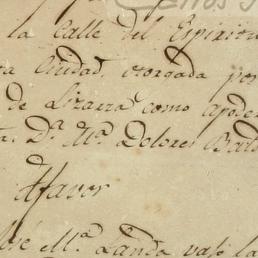 la Calle del Espiritu
Ciudad, otorgada por
de Lizarra como apode
Dª Mª Dolores
Favor
José Mª Landa